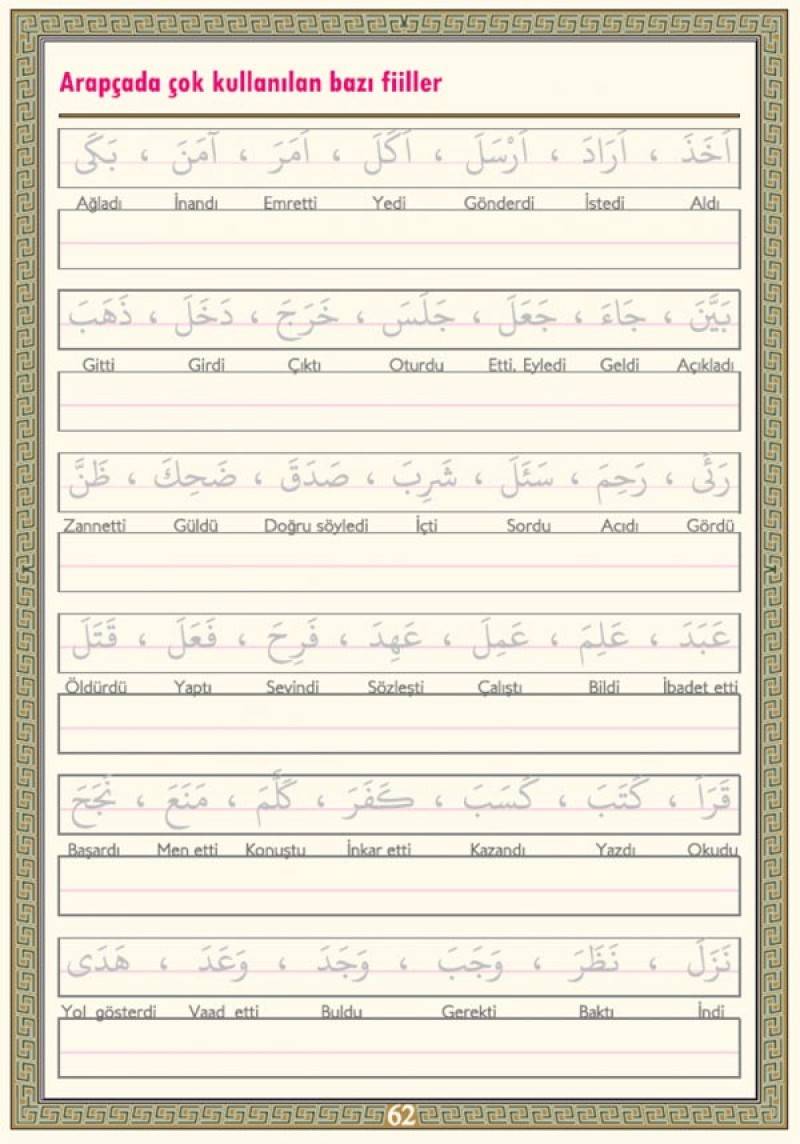 Arapçada çok kullanılan bazı fiiller
اَخَذَ ، اَرَادَ ، اَرْسَلَ ، اَكَلَ ، اَمَرَ ، آمَنَ ، بَكَى
Ağladı İnandı Emretti Yedi Gönderdi İstedi Aldı
بَيَّنَ ، جَاءَ ، جَعَلَ ، جَلَسَ ، خَرَجَ ، دَخَلَ ، ذَهَبَ
Gitti Girdi Çıktı Oturdu Etti, Eyledi Geldi Açıkladı
رَئَى ، رَحِمَ ، سَئَلَ ، شَرِبَ ، صَدَقَ ، ضَحِكَ ، ظَنَّ
Zannetti Güldü Doğru söyledi İçti Sordu Acıdı Gördü
عَبَدَ ، عَلِمَ ، عَمِلَ ، عَهِدَ ، فَرِحَ ، فَعَلَ ، قَتَلَ
Öldürdü Yaptı Sevindi Sözleşti Çalıştı Bildi İbadet etti
قَرَاَ ، كَتَبَ ، كَسَبَ ، كَفَرَ ، كَلَّمَ ، مَنَعَ ، نَجَحَ
Başardı Men etti Konuştu İnkar etti Kazandı Yazdı Okudu
نَزَلَ ، نَظَرَ ، وَجَبَ ، وَجَدَ ، وَعَدَ ، هَدَى
Yol gösterdi Vaad etti Buldu Gerekti Baktı İndi
62